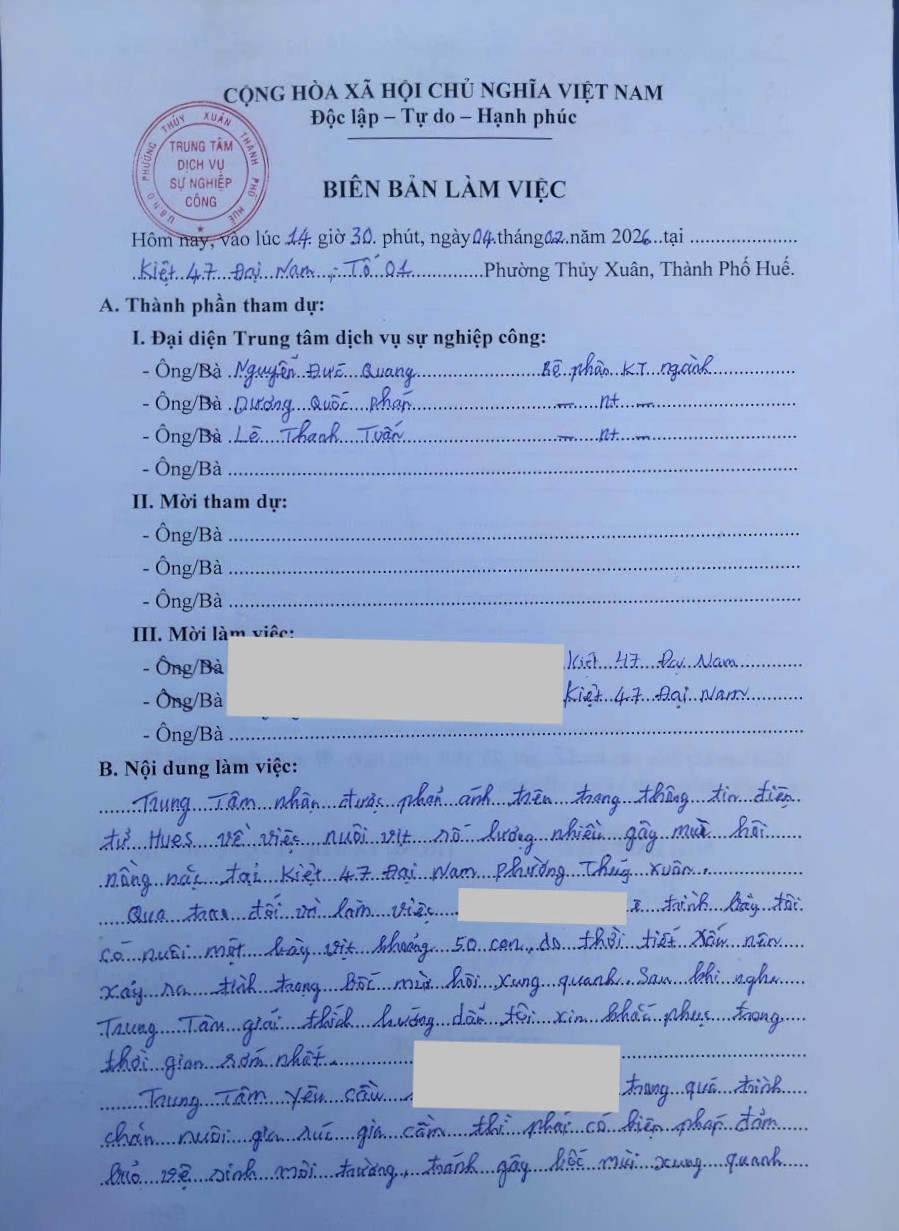 CỘNG HÒA XÃ HỘI CHỦ NGHĨA VIỆT NAM
Độc lập – Tự do – Hạnh phúc
U.B.N.D PHƯỜNG THỦY XUÂN THÀNH PHỐ HUẾ
TRUNG TÂM
DỊCH VỤ
SỰ NGHIỆP
CÔNG
BIÊN BẢN LÀM VIỆC
Hôm nay, vào lúc 14 giờ 30 phút, ngày 04 tháng 02 năm 2026 tại
Kiệt 47 Đại Nam, Tổ 01 Phường Thủy Xuân, Thành Phố Huế.
A. Thành phần tham dự:
I. Đại diện Trung tâm dịch vụ sự nghiệp công:
- Ông/Bà Nguyễn Đức Quang Bộ phận KT ngành
- Ông/Bà Dương Quốc Pháp — nt —
- Ông/Bà Lê Thanh Tuấn — nt —
- Ông/Bà
II. Mời tham dự:
- Ông/Bà
- Ông/Bà
- Ông/Bà
III. Mời làm việc:
- Ông/Bà Kiệt 47 Đại Nam
- Ông/Bà Kiệt 47 Đại Nam
- Ông/Bà
B. Nội dung làm việc:
Trung Tâm nhận được phản ánh trên trang thông tin điện
tử Hues về việc nuôi vịt số lượng nhiều gây mùi hôi
nồng nặc tại Kiệt 47 Đại Nam phường Thủy Xuân.
Qua trao đổi và làm việc trình bày tôi
có nuôi một bầy vịt khoảng 50 con, do thời tiết xấu nên
xảy ra tình trạng bốc mùi hôi xung quanh. Sau khi nghe
Trung Tâm giải thích hướng dẫn tôi xin khắc phục trong
thời gian sớm nhất.
Trung Tâm yêu cầu trong quá trình
chăn nuôi gia súc gia cầm thì phải có biện pháp đảm
bảo vệ sinh môi trường, tránh gây bốc mùi xung quanh